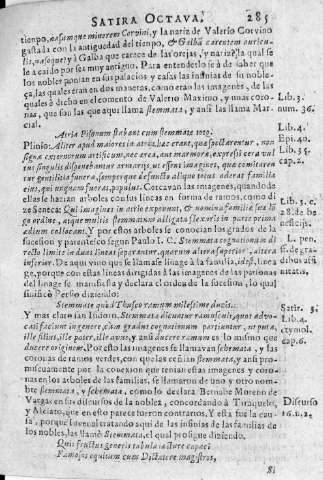 SATIRA OCTAVA. 285
tienpo, nasumque minorem Corvini, y la nariz de Valerio Corvino
gastada con la antiguedad del tienpo, & Galba carentem auricu-
lis, nasoque, y Galba que carece de las orejas, y nariz, la qual se
le a caido por ser muy antiguo. Para entenderlo se à de saber que
los nobles ponian en sus palacios y casas las insinias de su noble-
ça, las quales eran en dos maneras, como eran las imagenes, de las
quales è dicho en el comento de Valerio Maximo, y unas coro-
nas, que son las que aqui llama stemmata, y ansi las llama Mar-
cial.
Lib. 3.
num. 36.
Atria Pisonum stabant cum stemmate toto.
Lib. 4.
Epi. 40.
Plinio: Aliter apud maiores in atrijs hac erant, que spectarentur, non
signa externorum artificum, nec æra, aut marmora, expresi cera vul
tus singulis disponebantur armarijs, ut essent imagines, que comitaren
tur gentilitia funera, semperque defuncto aliquo totus aderat familia
eius, qui unquam fuerat populus.
Lib. 35.
cap. 2.
Cercavan las imagenes, quando de
ellas se hazian arboles con sus lineas en forma de ramos, como di
ze Seneca: Qui imagines in atrio exponunt, & nomina familiæ suæ lo
go ordine, atque multis stemmatum alligata flexuris in parte prima
ædium collocant.
Lib. 3. c.
28. de be
neficijs.
Y por estos arboles se conocian los grados de la
sucesion y parentesco segun Paulo I. C. Stemmata cognationum di
recto limite in duas lineas separantur, quarum altera superior, altera
inferior.
L. pen.
ff. de gra-
dibus afi
nitatis,
De aqui vino que se llamase linaga à la familia, idest, linea
ge, porque con estas lineas dirigidas à las imagenes de las paredes
del linage se manifiesta y declara el orden de la sucesion, lo qual
sinificò Persio diziendo:
Stemmate quòd Thusco ramum millesime ducis.
Satir. 3.
Y mas claro san Isidoro, Stemmata dicuntur ramusculi, quos advo-
cati faciunt in genere, cùm gradus cognationum partiuntur, ut puta,
ille filius, ille pater, ille avus, y ansi ducere ramum es lo mismo que
ducere originem.
Lib. 4.
etymol.
cap. 6.
Por esto las imagenes se llamavan schemata, y las
coronas de ramos verdes, con que las ceñian stemmata, y ansi pro-
miscuamente por la conexion que tenian estas imagenes y coro-
nas en los arboles de las familias, se llamaron de uno y otro nom-
bre stemmata, y schemata, como lo declara Bernabe Moreno de
Vargas en sus discursos de la nobleza, concordando à Tiraquelo,
y Alciato, que en esto parece fueron contrarios.
Discurso
16. n. 2.
Y esta fue la cau-
sa, porque Iuvenal tratando aqui de las insinias de las familias de
los nobles, las llamò Stemmata, el qual prosigue diziendo.
Quis fructus generis tabula iactare capaci
Fumosos equitum cum Dictatore magistros,
Si